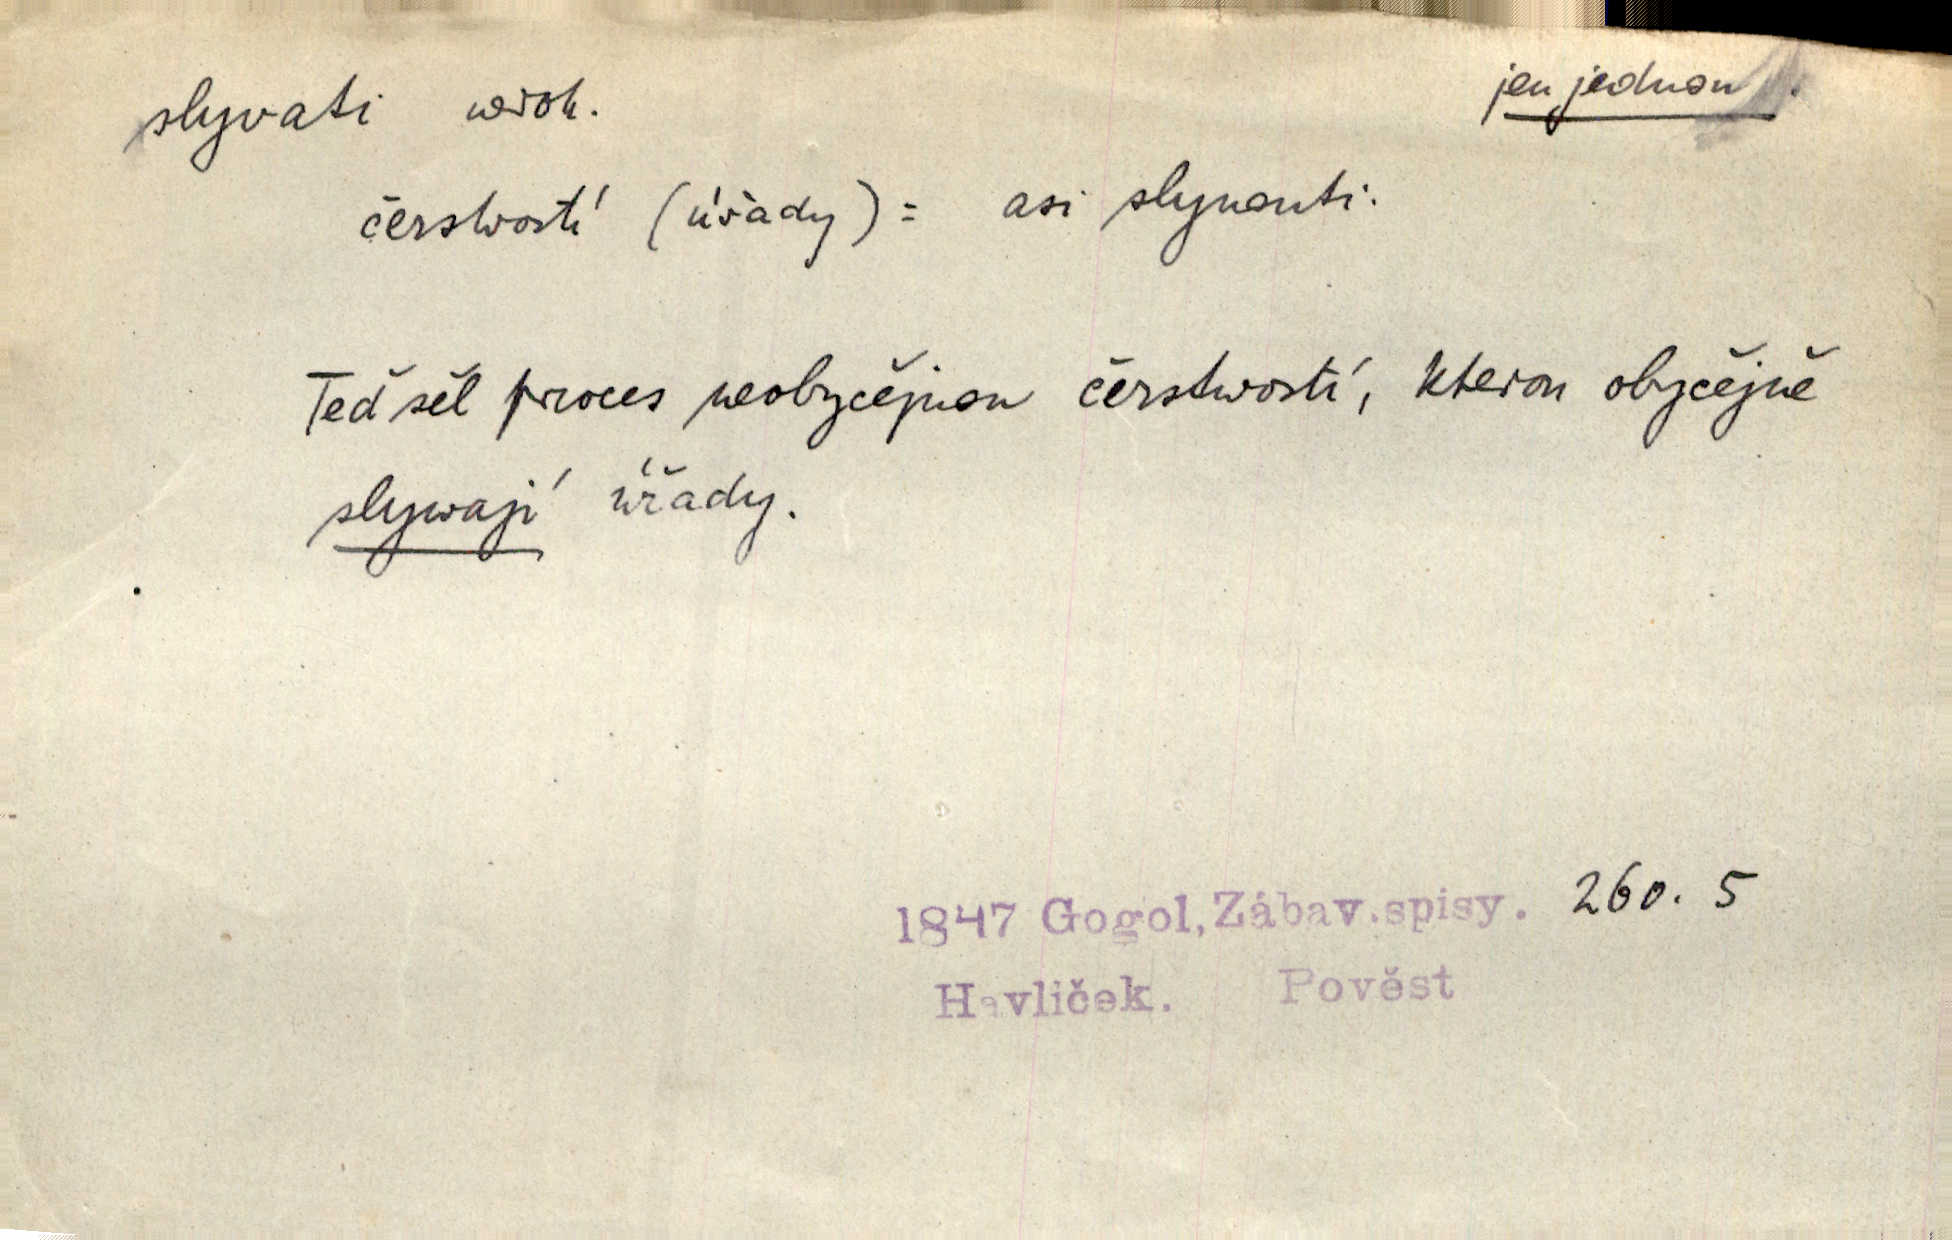 slyvati něčím jen jednou.
čerstvostí (úřady) = asi slynouti.
Teď šel proces neobyčejnou čerstwostí, kterou obyčejně
slywají úřady.
1847 Gogol, Zábav.spisy. 260. 5
Havlíček. Pověst